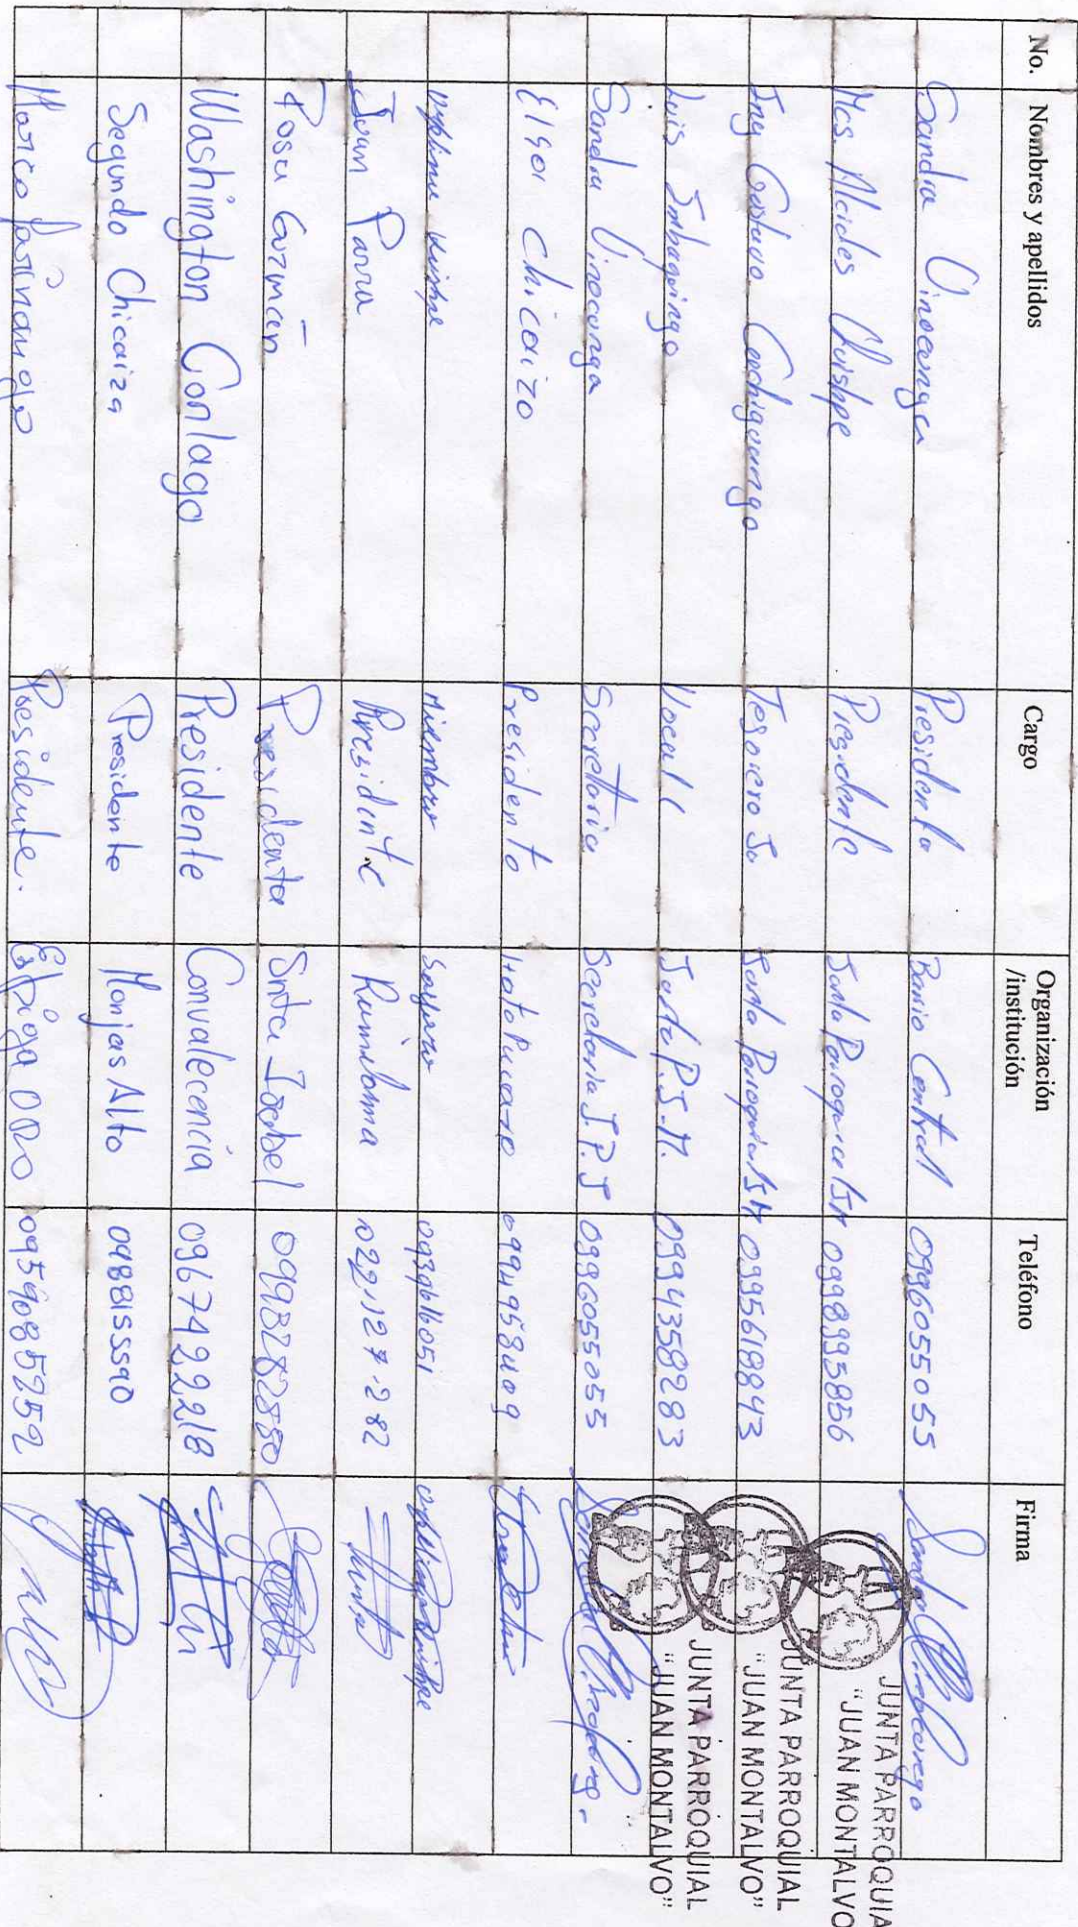 No. Nombres y apellidos Cargo Organización /institución Teléfono Firma
Sandra Presidenta Barrio Central 0996055055
Mcs. Alcides Quishpe Presidente Junta Parroquial JM 0998995856
JUNTA PARROQUIA
"JUAN MONTALVO
Ing Gustavo Cachiguango Tesorero Junta Parroquial JM 0995618843
JUNTA PARROQUIAL
"JUAN MONTALVO"
Luis Imbaquingo Vocal Junta P.J.M. 0994358283
JUNTA PARROQUIAL
"JUAN MONTALVO"
Sandra Secretaria Secretaria J.P.J 0996055055
Elsor Chicaiza Presidente 0994958409
Quishpe Miembro 0939616051
Juan Parra Presidente Rumiloma 022-127-282
Rosa Guzmán Presidenta Snta Isabel 0993282880
Washington Conlago Presidente Convalecencia 0967422218
Segundo Chicaiza Presidente Monjas Alto 0988155590
Marco Farinango Presidente. Espiga 0959085252